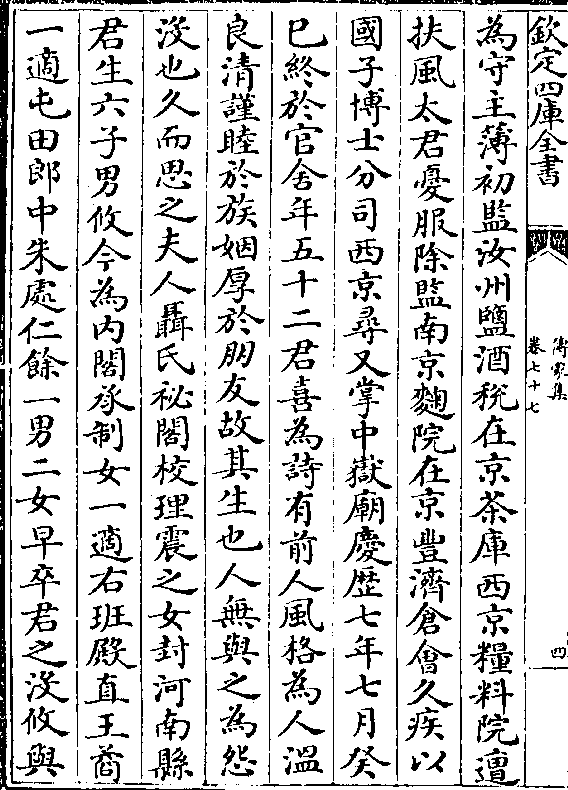 欽定四庫全書
傳家集
卷七十七
四
為守主薄初監汝州鹽酒稅在京茶庫西京糧料院遭
扶風太君憂服除監南京麴院在京豐濟倉會久疾以
國子博士分司西京尋又掌中嶽廟慶歴七年七月癸
巳終於官舍年五十二君喜為詩有前人風格為人温
良清謹睦於族姻厚於朋友故其生也人無與之為怨
没也久而思之夫人聶氏祕閣校理震之女封河南縣
君生六子男攸今為内閣承制女一適右班殿直王裔
一適屯田郎中朱處仁餘一男二女早卒君之没攸與